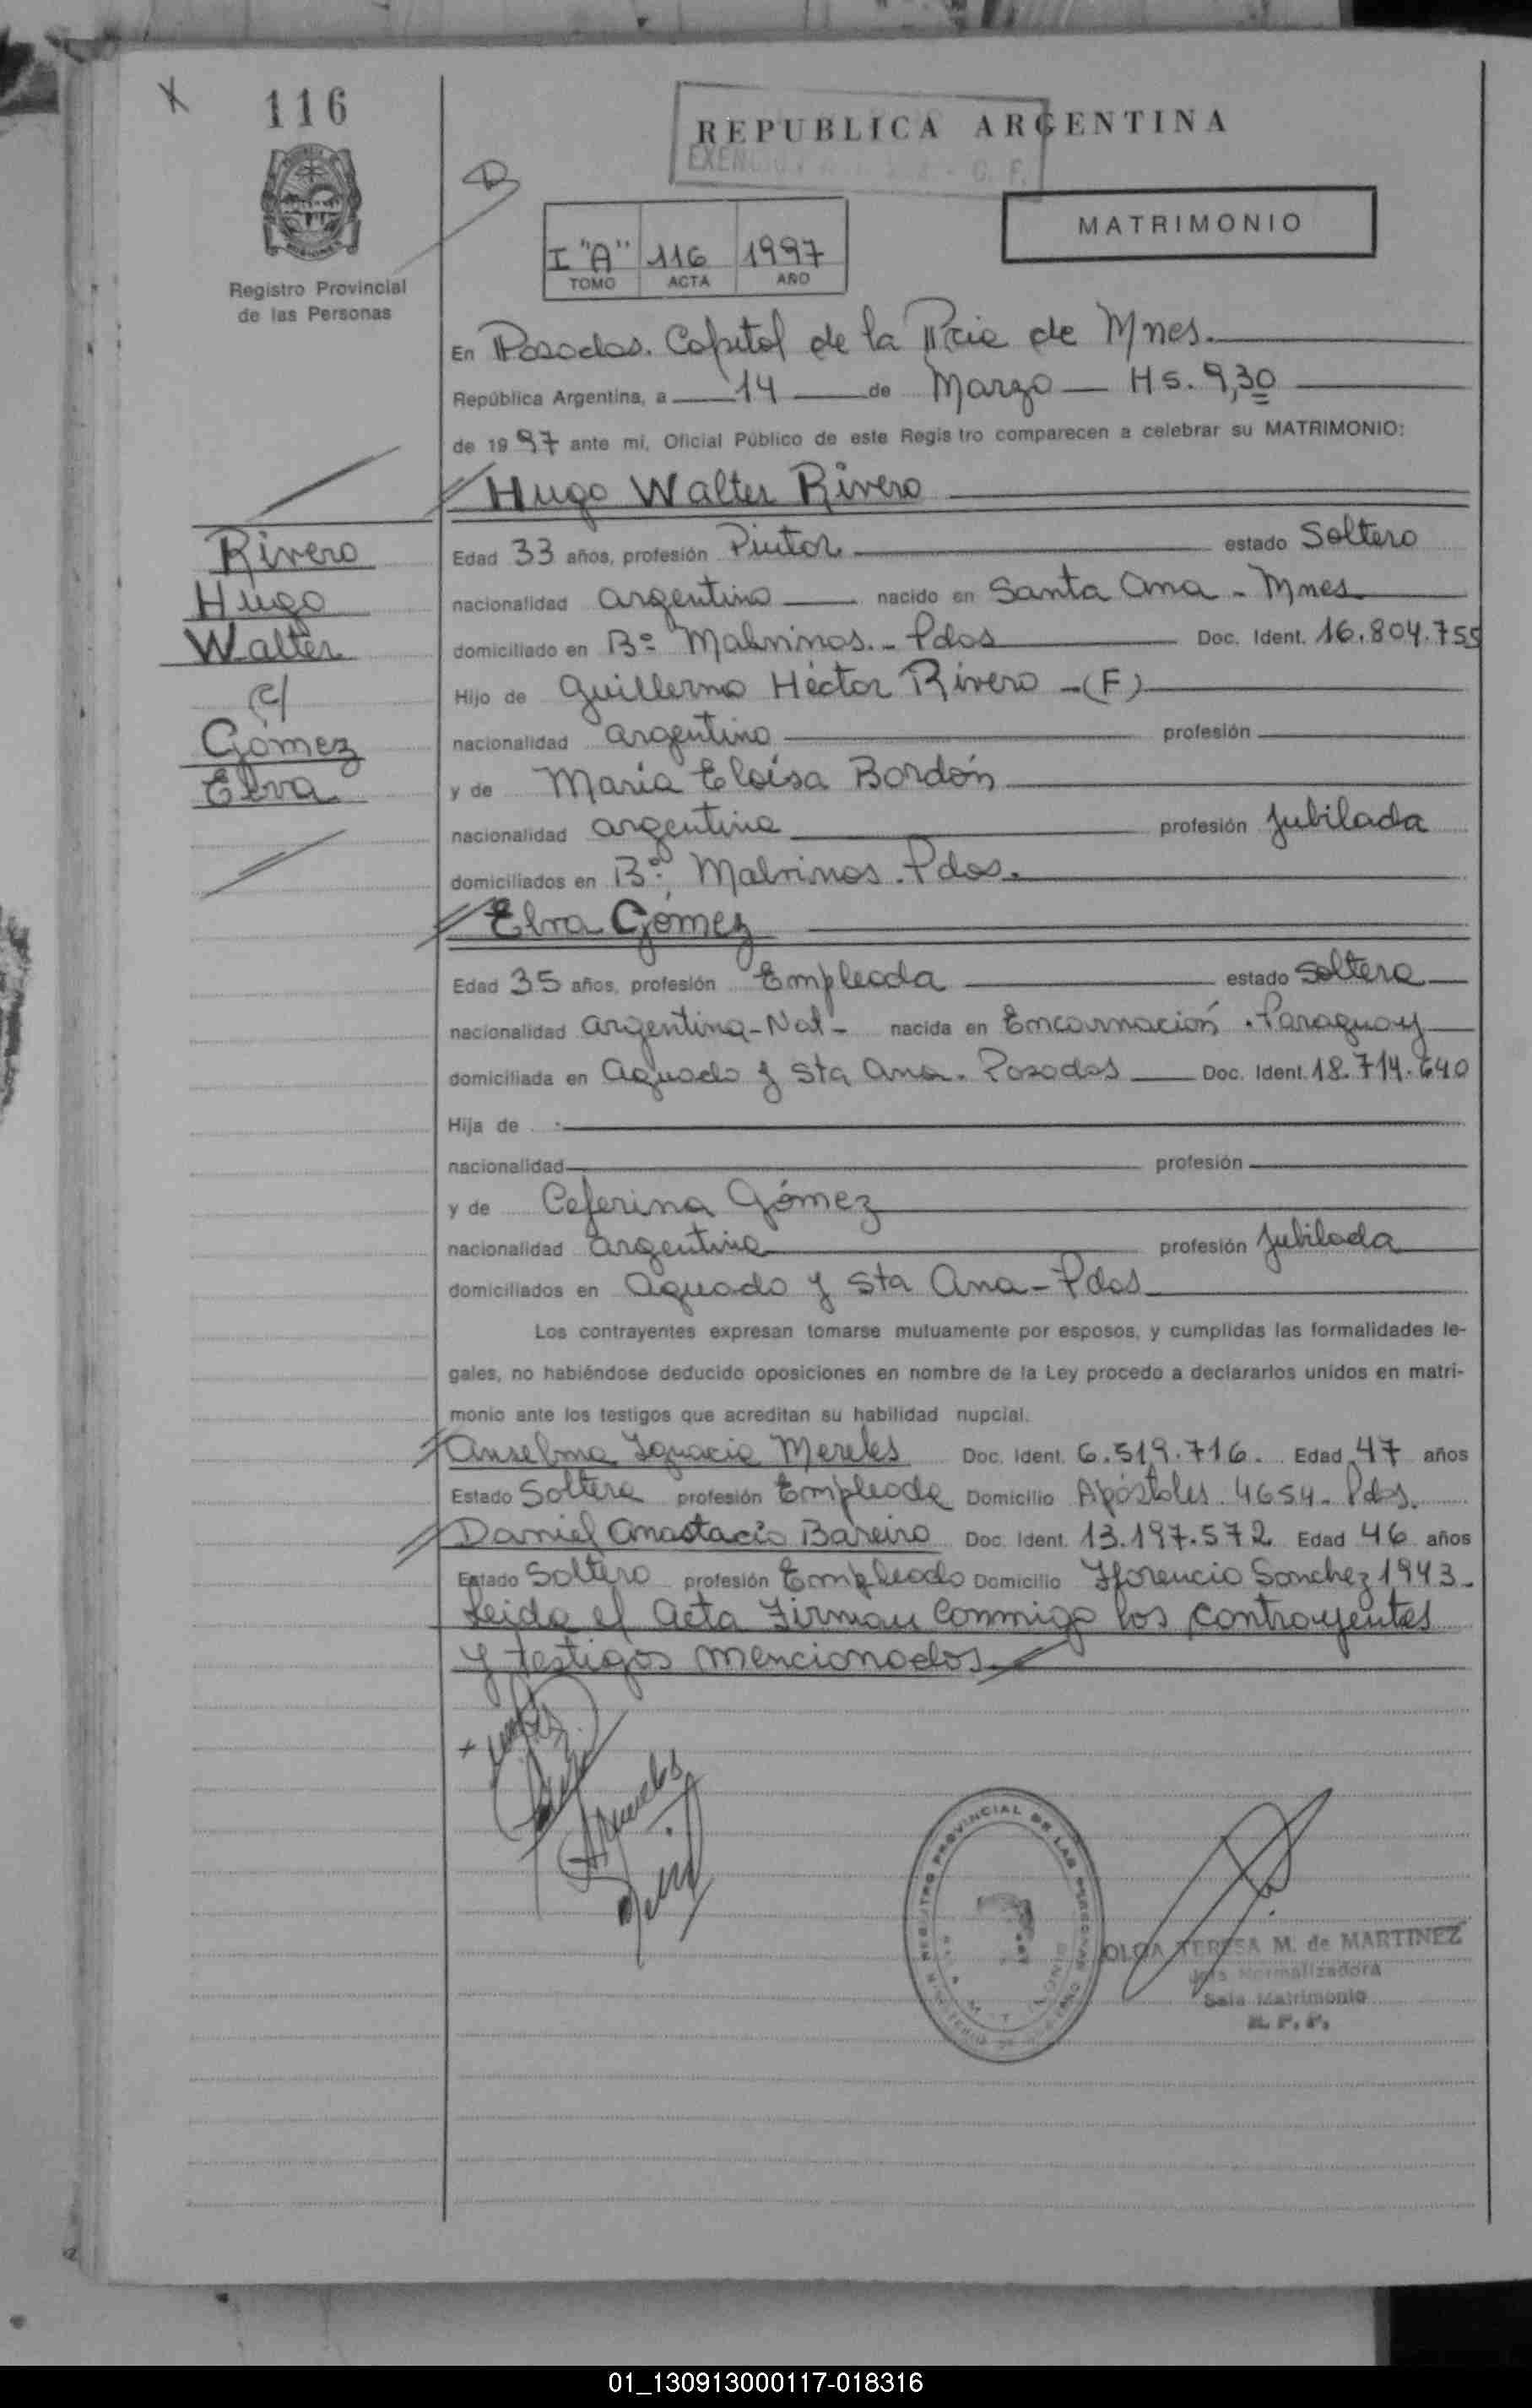 116
REPUBLICA ARGENTINA
MATRIMONIO
I "A" 116 1997
TOMO ACTA AÑO
Registro Provincial
de las Personas
En Posadas. Capital de la Pcia de Mnes.
República Argentina, a 14 de Marzo Hs. 9,30
de 1997 ante mí, Oficial Público de este Registro comparecen a celebrar su MATRIMONIO:
Hugo Walter Rivero
Rivero
Hugo
Walter
c/
Gómez
Elva
Edad 33 años, profesión Pintor estado Soltero
nacionalidad argentino nacido en Santa Ana - Mnes
domiciliado en B:º Malvinas. - Pdas Doc. Ident. 16.804.755
Hijo de Guillermo Héctor Rivero - (F)
nacionalidad argentino profesión
y de María Eloísa Bordón
nacionalidad argentina profesión Jubilada
domiciliados en B:º Malvinas. Pdas.
Elva Gómez
Edad 35 años, profesión Empleada estado Soltera
nacionalidad argentina - Nat - nacida en Encarnación. Paraguay
domiciliada en Aguado y Sta Ana. Posadas Doc. Ident. 18.714.640
Hija de
nacionalidad profesión
y de Ceferina Gómez
nacionalidad argentina profesión Jubilada
domiciliados en Aguado y Sta Ana - Pdas
Los contrayentes expresan tomarse mutuamente por esposos, y cumplidas las formalidades le-
gales, no habiéndose deducido oposiciones en nombre de la Ley procedo a declararlos unidos en matri-
monio ante los testigos que acreditan su habilidad nupcial.
Anselma Ignacia Mereles Doc. Ident. 6.519.716. Edad 47 años
Estado Soltera profesión Empleada Domicilio Apóstoles 4654. Pdas.
Daniel Anastacio Bareiro Doc. Ident. 13.197.572 Edad 46 años
Estado Soltero profesión Empleado Domicilio Florencio Sanchez 1943.
Leida el Acta Firman Conmigo los contrayentes
y testigos mencionados
REGISTRO PROVINCIAL DE LAS PERSONAS
OLGA TERESA M. de MARTINEZ
Jefa Normalizadora
Sala Matrimonio
R. P. P.
01_130913000117-018316